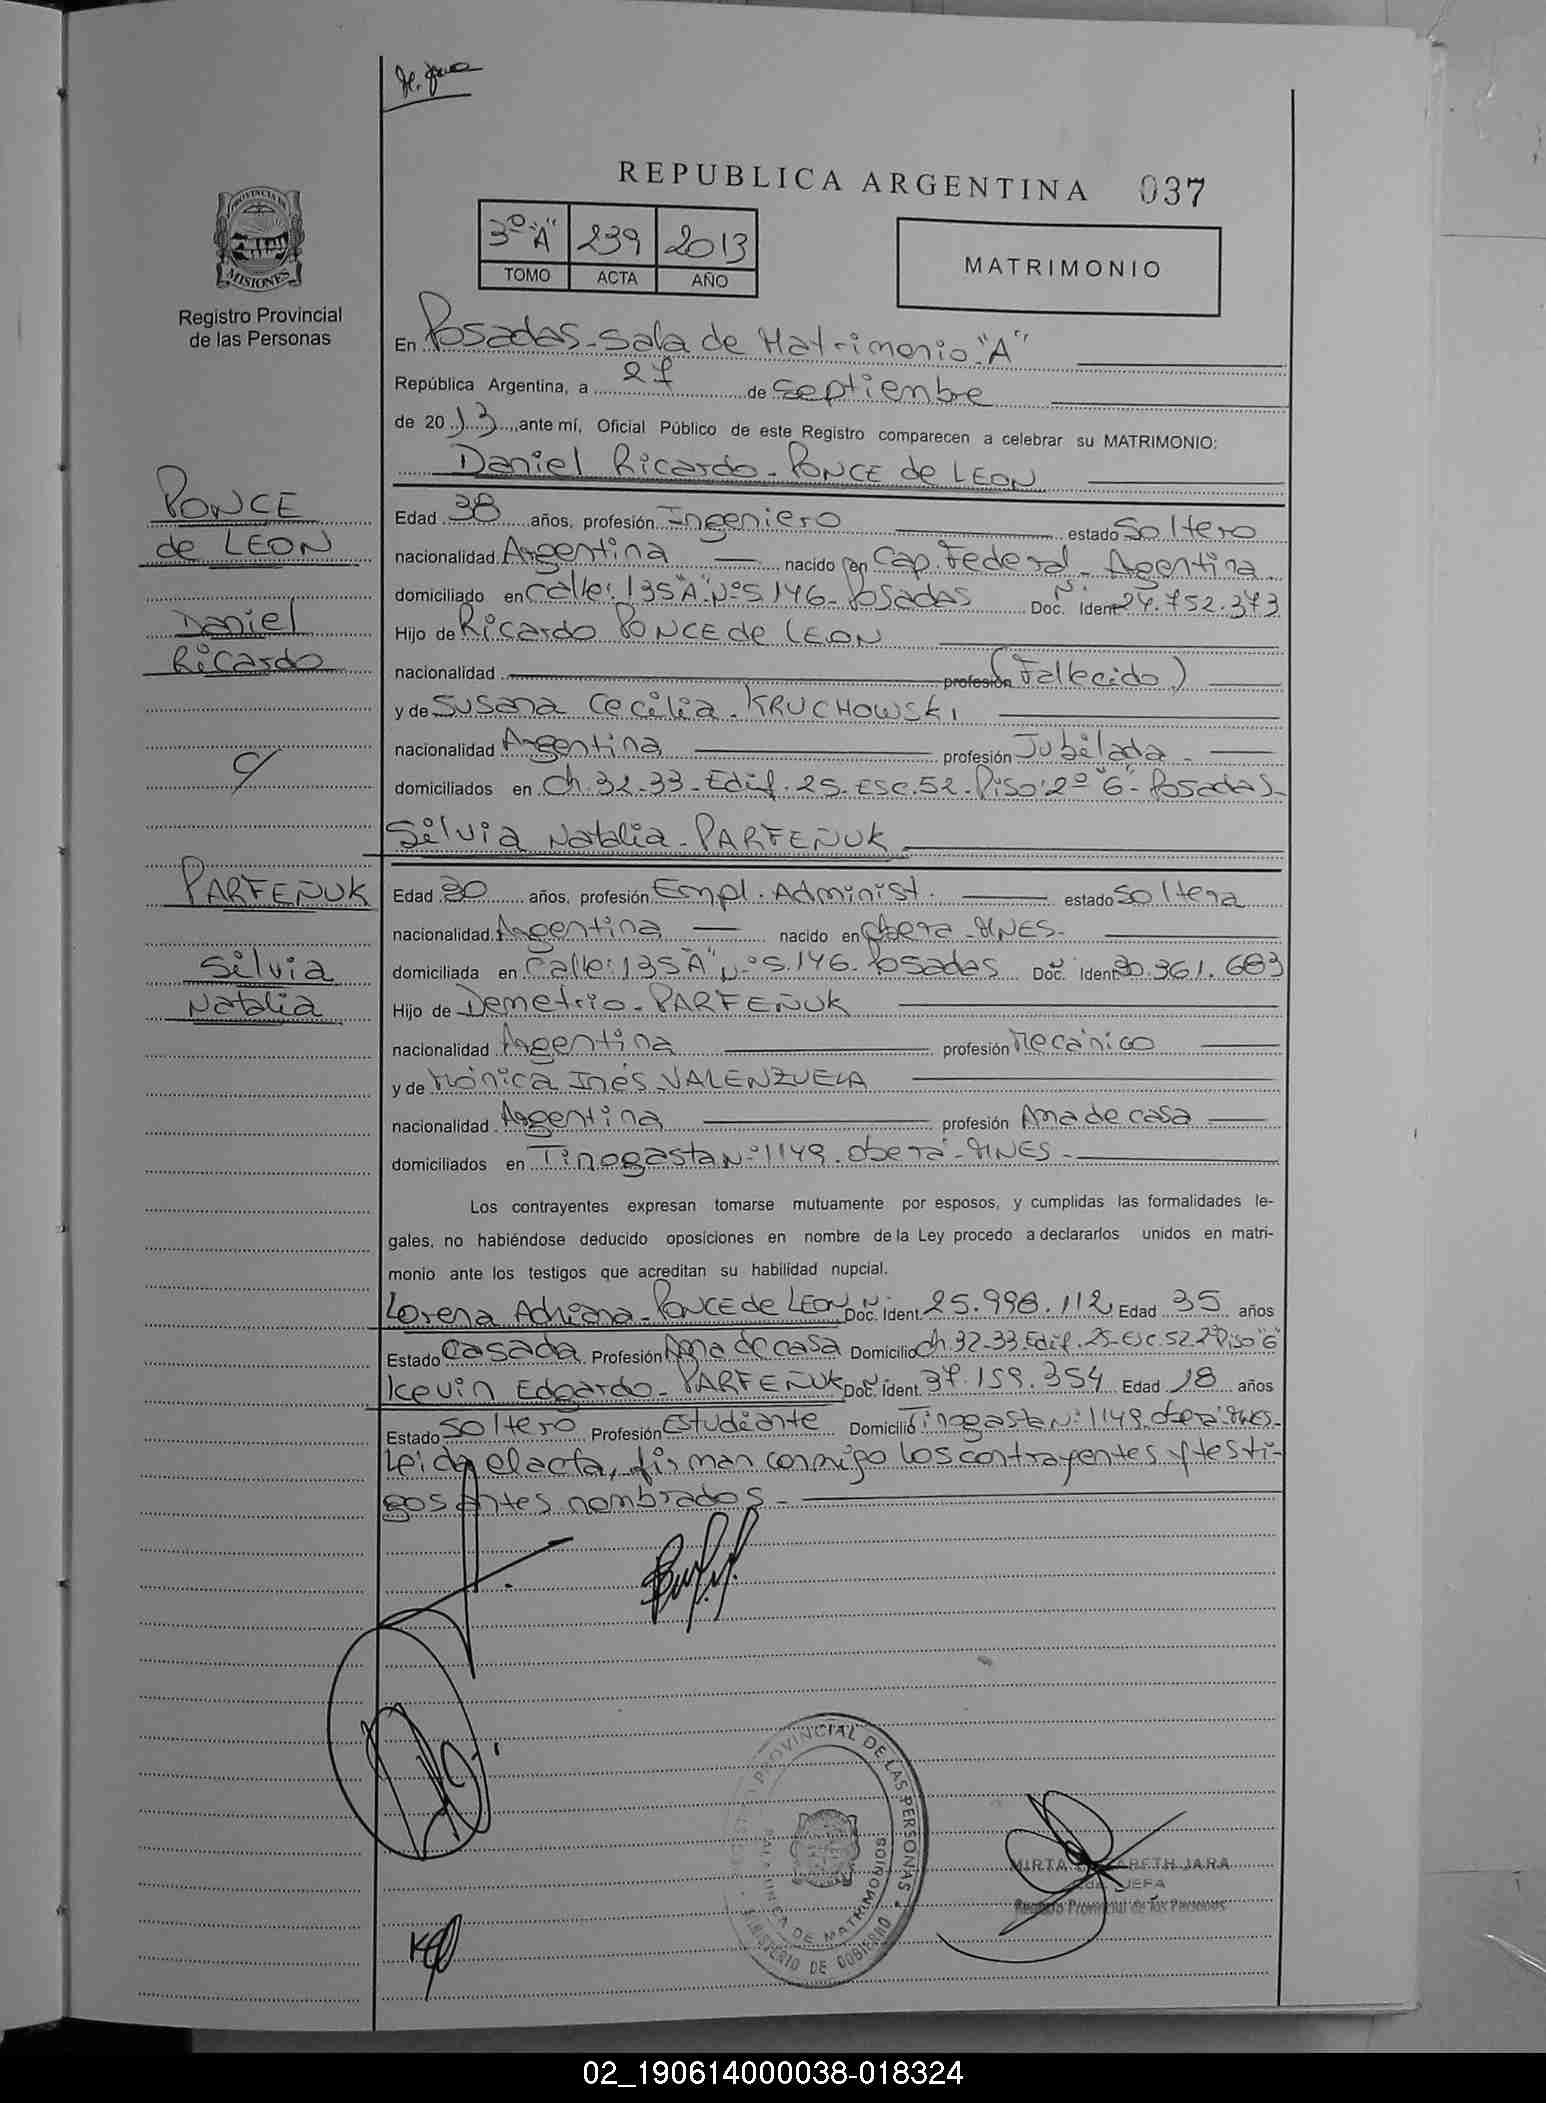 REPUBLICA ARGENTINA 037
PROVINCIA DE
MISIONES
Registro Provincial
de las Personas
3º "A" 239 2013
TOMO ACTA AÑO
MATRIMONIO
En Posadas-Sala de Matrimonio "A"
República Argentina, a 27 de Septiembre
de 2013, ante mí, Oficial Público de este Registro comparecen a celebrar su MATRIMONIO:
Daniel Ricardo-PONCE de LEON
PONCE
de LEON
Daniel
Ricardo
Edad 38 años, profesión Ingeniero estado Soltero
nacionalidad Argentina nacido en Cap. Federal-Agentina
domiciliado en Calle: 135"A" Nº 5.146-Posadas Doc. Ident 24.752.373
Hijo de Ricardo PONCE de LEON
nacionalidad profesión (Fallecido)
y de Susana Cecilia-KRUCHOWSKI
nacionalidad Argentina profesión Jubilada-
domiciliados en Ch. 32-33-Edif. 25-Esc. 52-Piso: 2º "G"-Posadas-
c/
Silvia Natalia-PARFEÑUK
PARFEÑUK
Silvia
Natalia
Edad 30 años, profesión Empl. Administ. estado Soltera
nacionalidad Argentina nacido en Oberá-MNES-
domiciliada en Calle: 135"A" Nº 5.146-Posadas Doc. Ident 30.361.683
Hijo de Demetrio-PARFEÑUK
nacionalidad Argentina profesión Mecánico
y de Mónica Inés-VALENZUELA
nacionalidad Argentina profesión Ama de casa
domiciliados en Tinogasta Nº 1149-Oberá-MNES-
Los contrayentes expresan tomarse mutuamente por esposos, y cumplidas las formalidades le-
gales, no habiéndose deducido oposiciones en nombre de la Ley procedo a declararlos unidos en matri-
monio ante los testigos que acreditan su habilidad nupcial.
Lorena Adriana-PONCE de LEON Doc. Ident. 25.998.112 Edad 35 años
Estado Casada Profesión Ama de casa Domicilio Ch. 32-33-Edif. 25-Esc. 52-2º Piso "G"
Kevin Edgardo-PARFEÑUK Doc. Ident. 37.159.354 Edad 18 años
Estado Soltero Profesión Estudiante Domicilio Tinogasta Nº 1149. Oberá-MNES-
Leida el acta, firman conmigo los contrayentes y testi-
gos antes nombrados-
PROVINCIAL DE LAS PERSONAS
DE MATRIMONIOS
MINISTERIO DE GOBIERNO
MIRTA JARA
JEFA
Registro Provincial de las Personas
02_190614000038-018324